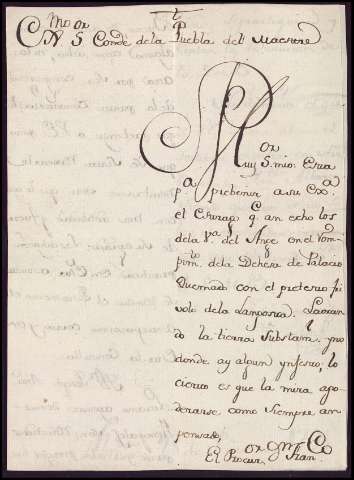 Exmo Sor Conde de la Puebla del Maestre
Muy Sor mio. Esta
pa prebenir a su Exa
el q. an echo los
de la Va. del en el Rom
pimto. de la Dehesa de Palacio
Quemado con el pretesto fri
volo de la Langosta. Laoran
do la tierra Substaml. por
donde ay algun ynfesto, lo
cierto es que la mira apo
derarse como siempre an
pensado,
El Procur.or Gral Fran.co